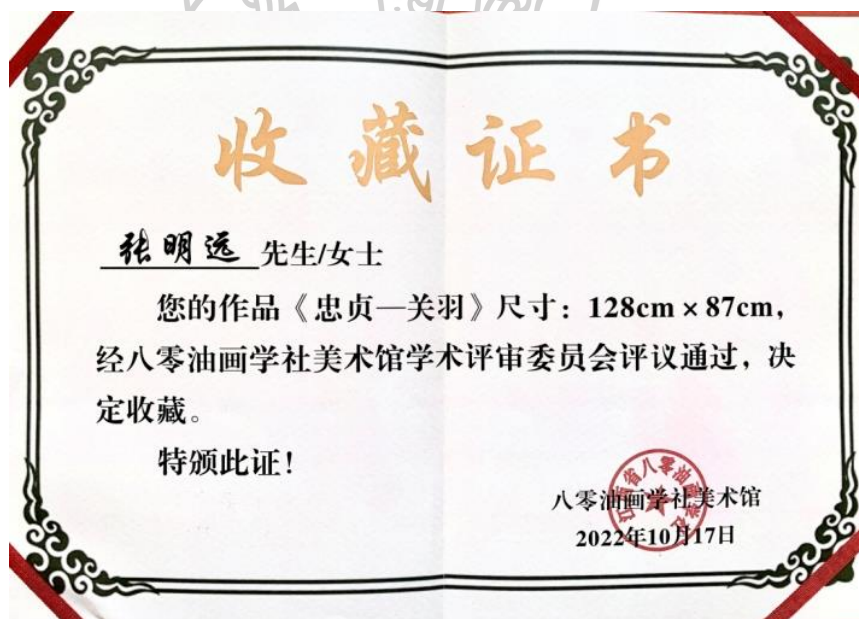 收藏证书
张明远 先生/女士
您的作品《忠贞—关羽》尺寸：128cm×87cm，
经八零油画学社美术馆学术评审委员会评议通过，决
定收藏。
特颁此证！
八零油画学社美术馆
2022年10月17日